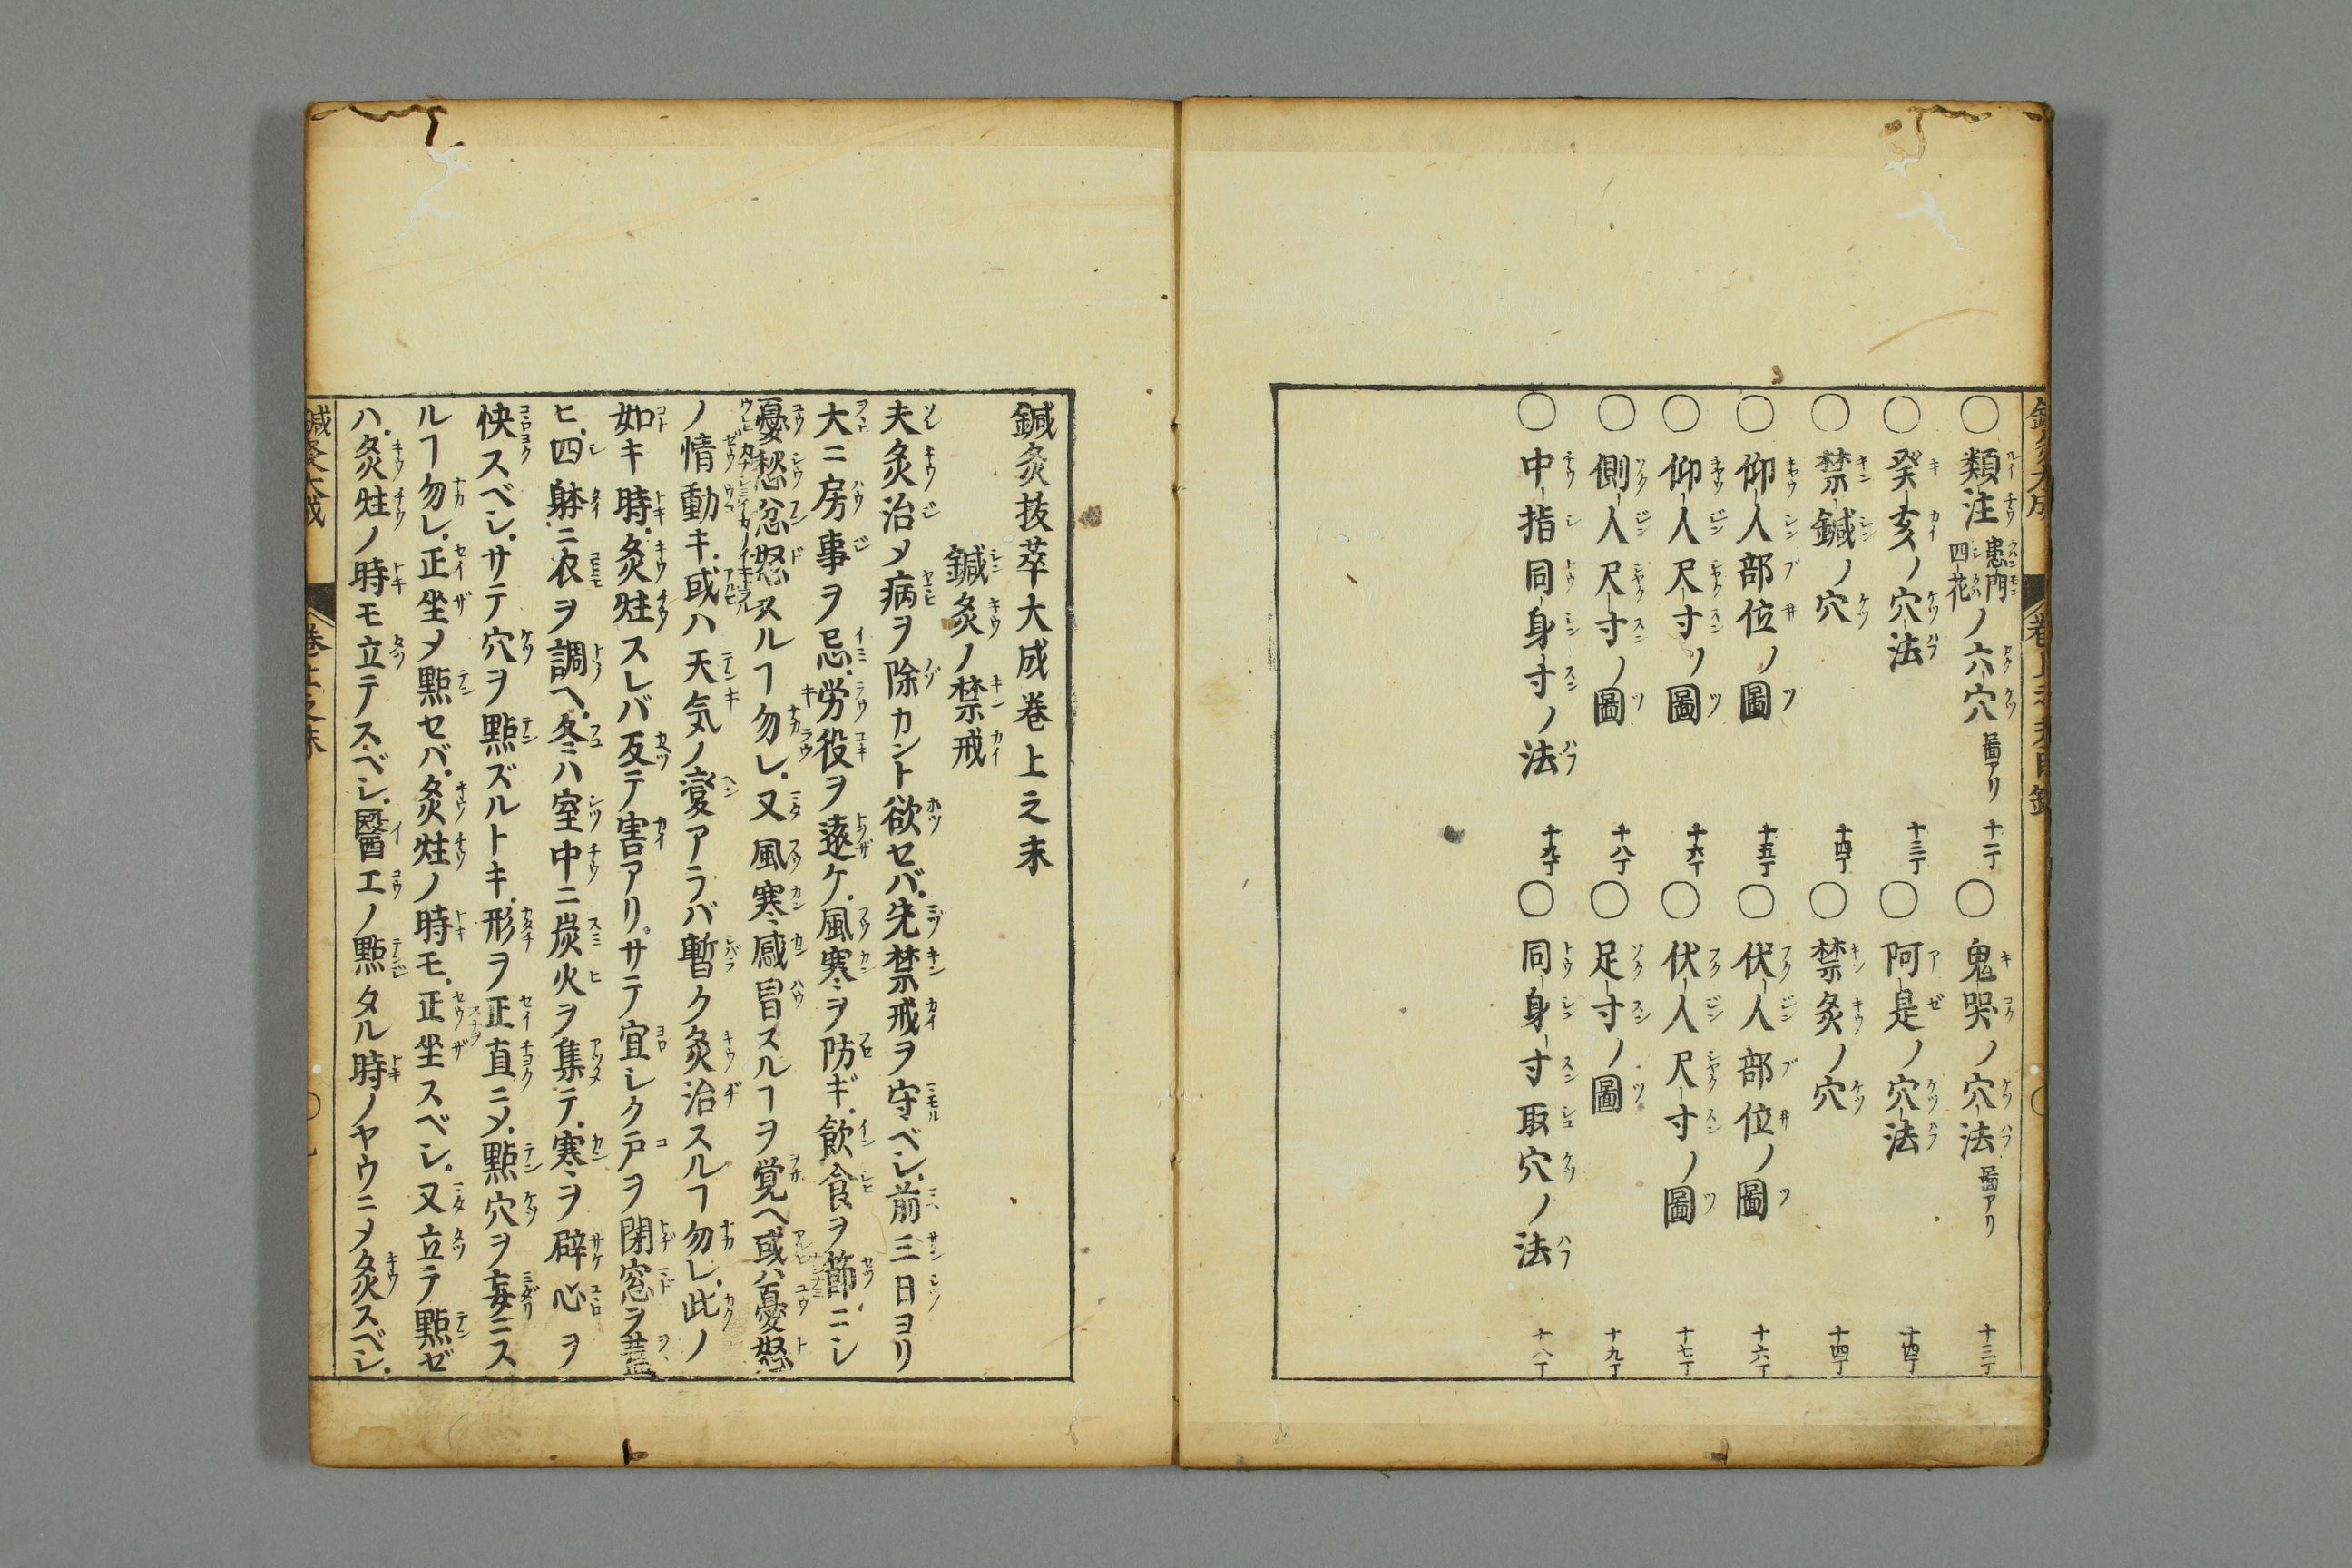 ○類注患門四花ノ六穴 圖アリ 十一丁
○鬼哭ノ穴法 圖アリ 十三丁
○癸亥ノ穴法 十三丁
○阿是ノ穴法 十四丁
○禁鍼ノ穴 十四丁
○禁灸ノ穴 十四丁
○仰人部位ノ圖 十五丁
○伏人部位ノ圖 十六丁
○仰人尺寸ノ圖 十六丁
○伏人尺寸ノ圖 十七丁
○側人尺寸ノ圖 十八丁
○足寸ノ圖 十九丁
○中指同身寸ノ法 十九丁
○同身寸取穴ノ法 十八丁
鍼灸抜萃大成巻上之末
鍼灸ノ禁戒
夫灸治メ病ヲ除カント欲セバ.先禁戒ヲ守ベシ.前三日ヨリ
大ニ房事ヲ忌.労役ヲ遠ケ.風寒ヲ防ギ.飲食ヲ節ニシ
憂愁忿怒スルヿ勿レ.又風寒感冒スルヿヲ覚ヘ或ハ憂怒
ノ情動キ.或ハ天気ノ變アラバ暫ク灸治スルヿ勿レ.此ノ
如キ時.灸炷スレバ反テ害アリ.サテ宜シク戸ヲ閉窓ヲ蓋
ヒ.四躰ニ衣ヲ調ヘ.冬ハ室中ニ炭火ヲ集テ.寒ヲ辟心ヲ
快スベシ.サテ穴ヲ點ズルトキ.形ヲ正直ニメ.點穴ヲ妄ニス
ルヿ勿レ.正坐メ點セバ.灸炷ノ時モ.正坐スベシ.又立テ點ゼ
ハ.灸炷ノ時モ立テスベシ.醫工ノ點タル時ノヤウニメ灸スベシ.
鍼灸大成 巻上之末